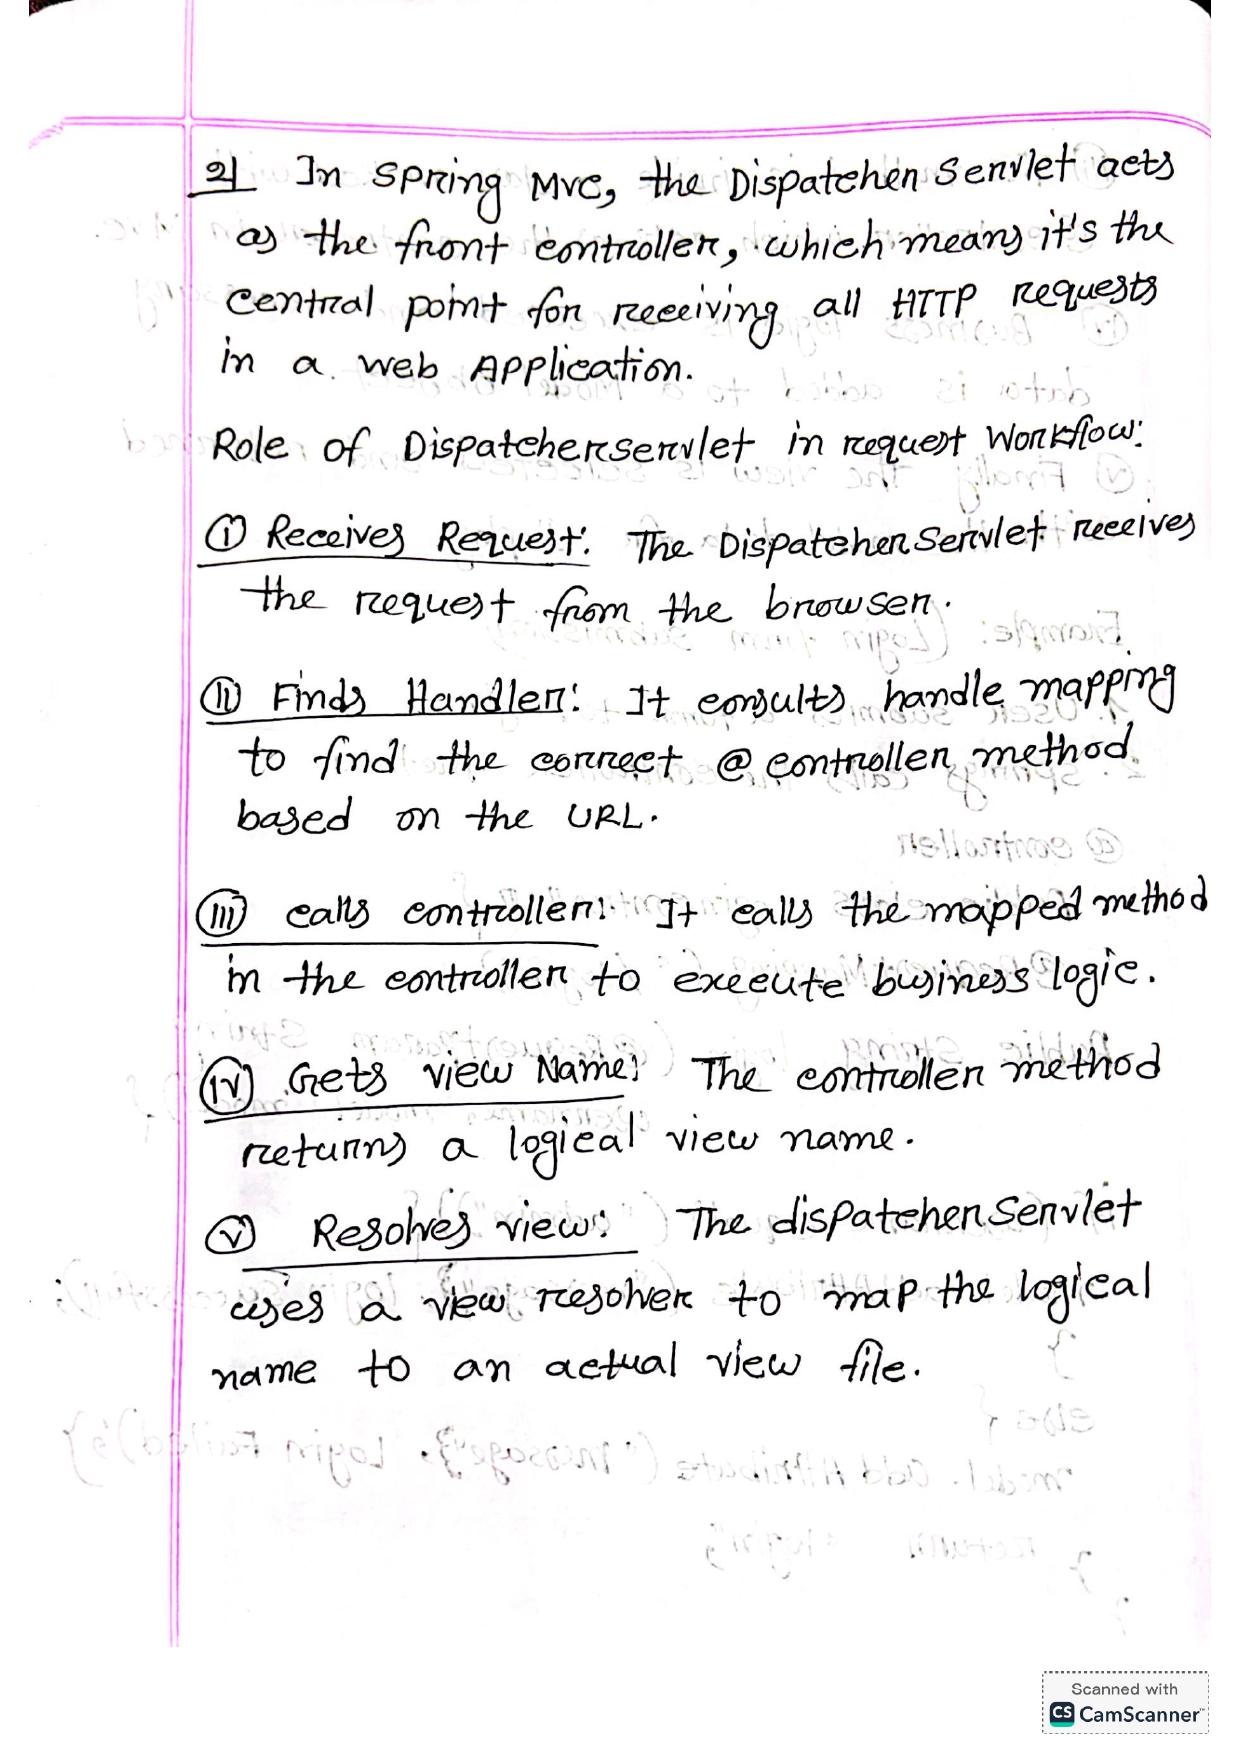 ২| In Spring MVC, the DispatcherServlet acts
as the front controller, which means it's the
central point for receiving all HTTP requests
in a web Application.
Role of Dispatcherservlet in request Workflow:
(i) Receives Request: The DispatcherServlet receives
the request from the browser.
(ii) Finds Handler: It consults handle mapping
to find the correct @controller method
based on the URL.
(iii) calls controller: It calls the mapped method
in the controller to execute business logic.
(iv) Gets view Name: The controller method
returns a logical view name.
(v) Resolves view: The dispatcherServlet
uses a view resolver to map the logical
name to an actual view file.
Scanned with
CS CamScanner